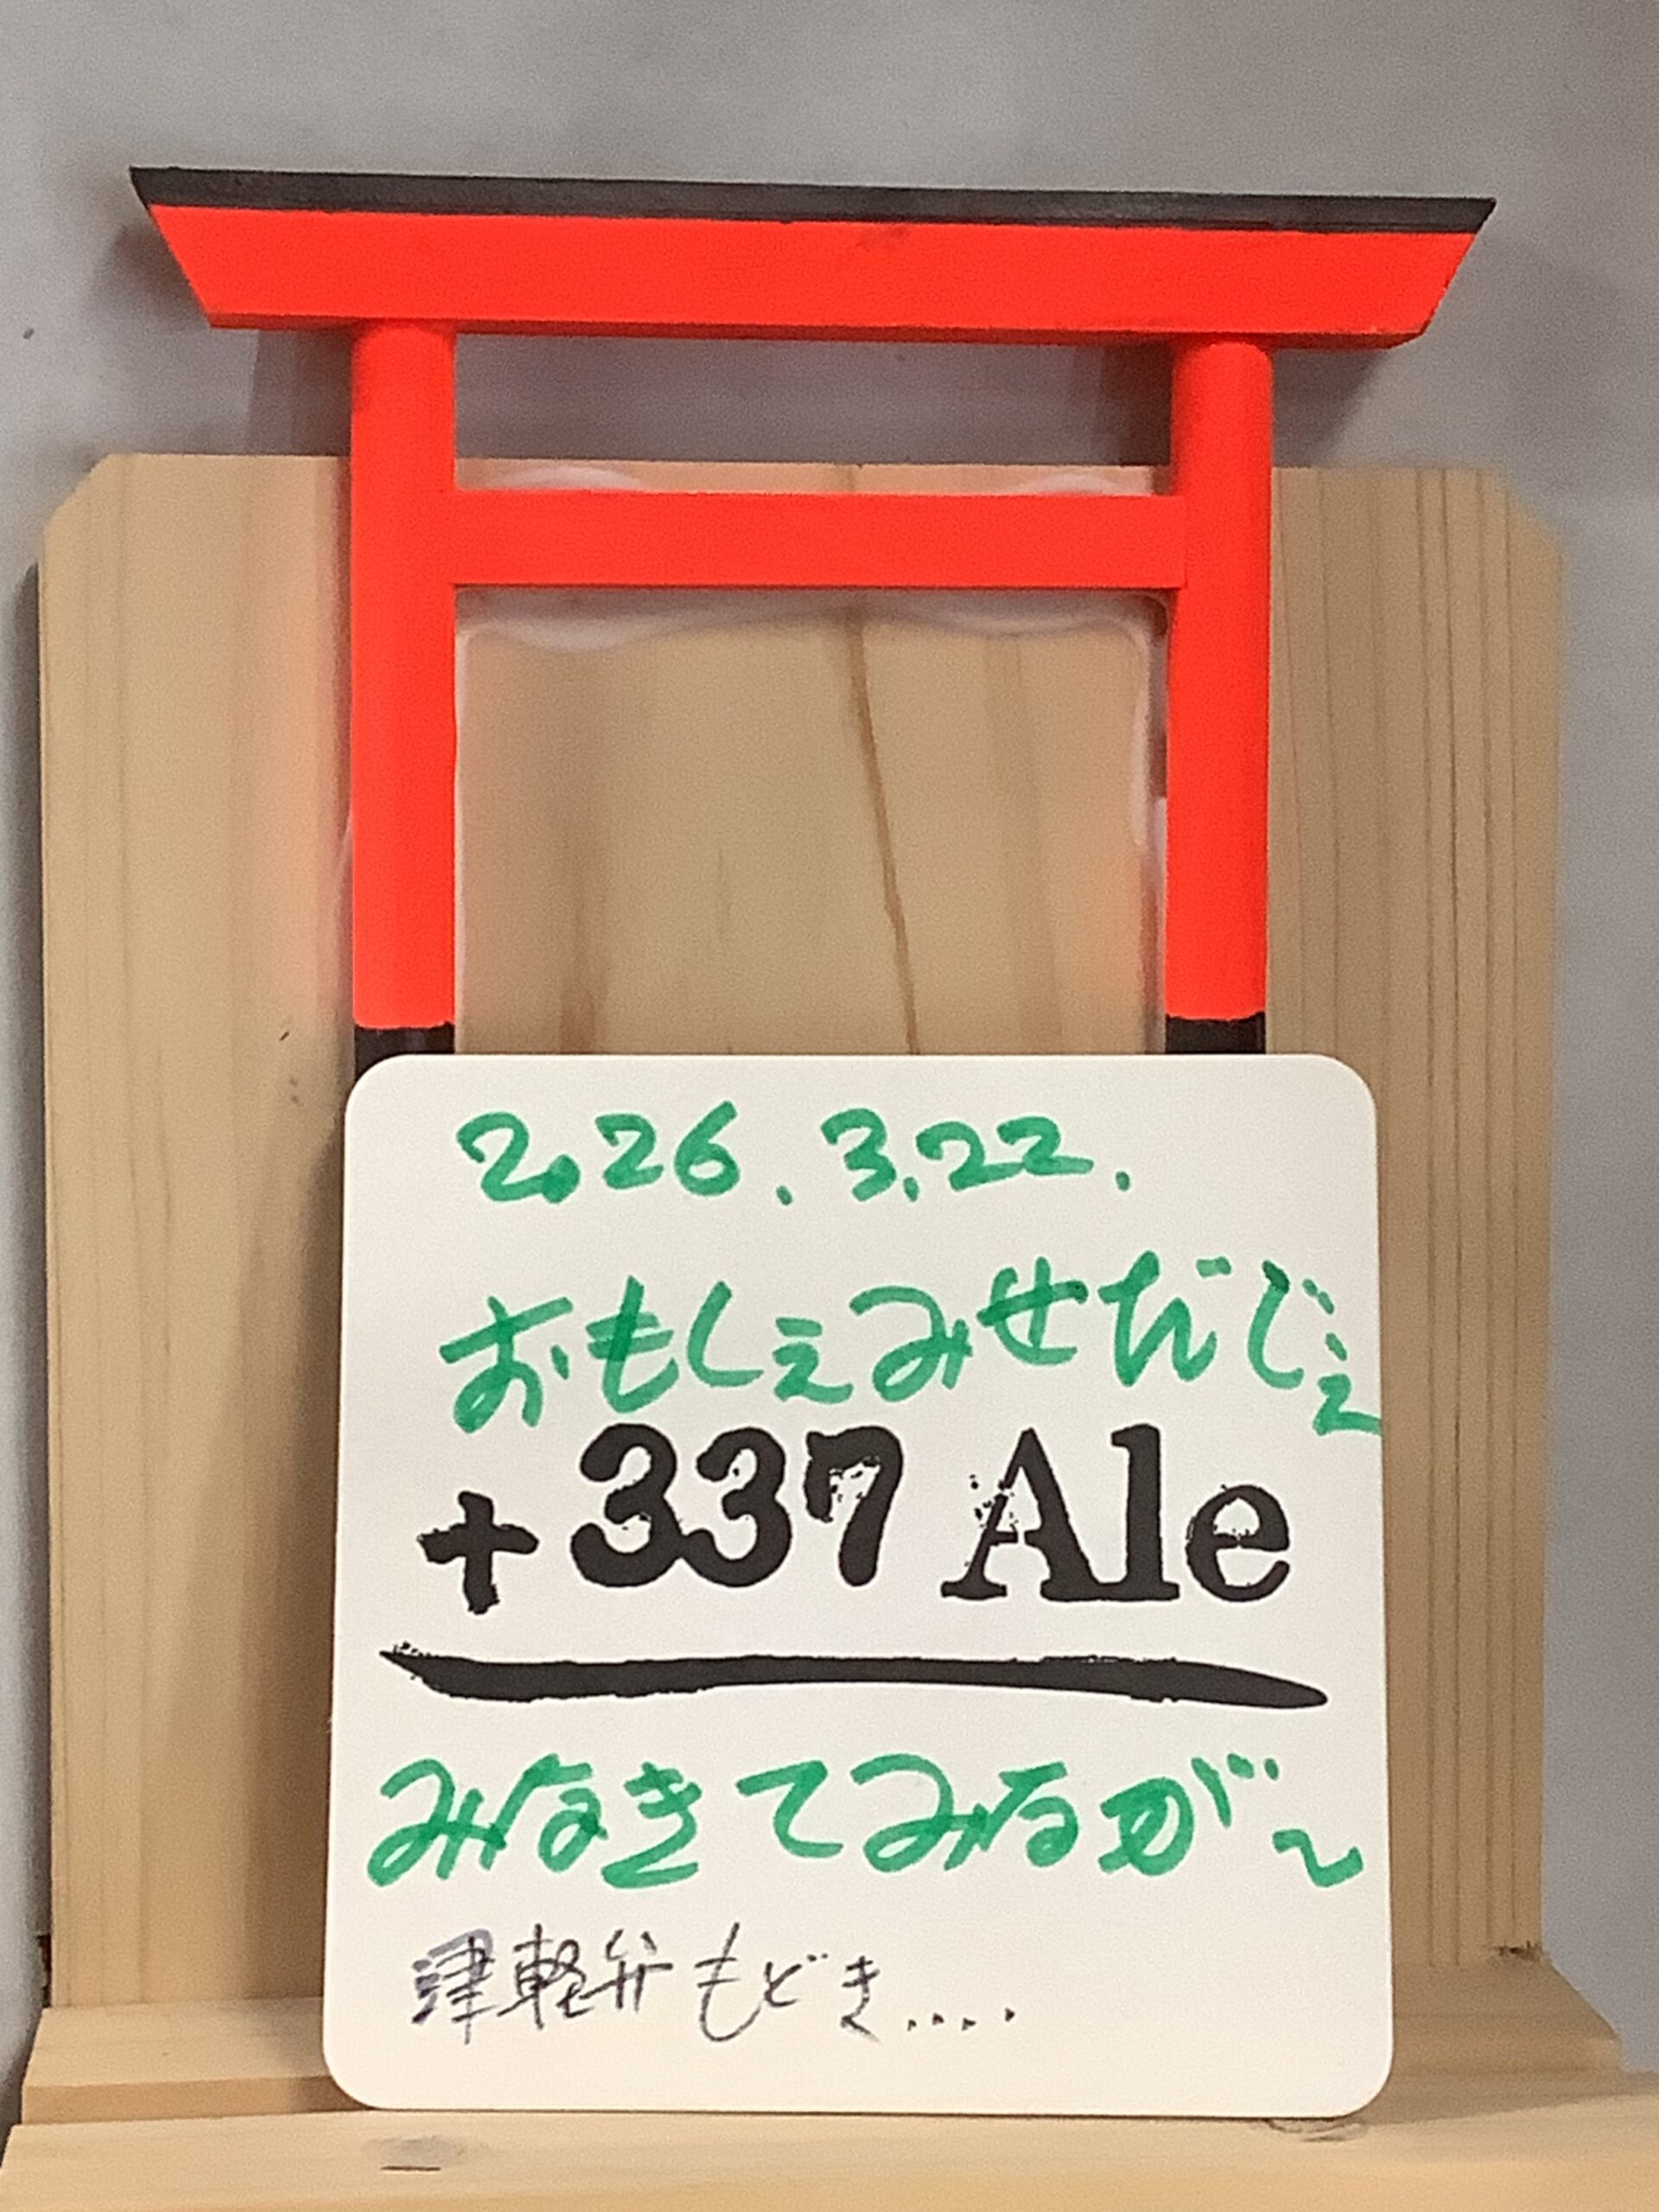 2026.3.22.
おもしぇみせだじぇ
+337 Ale
みなきてみるが~
津軽弁もどき....